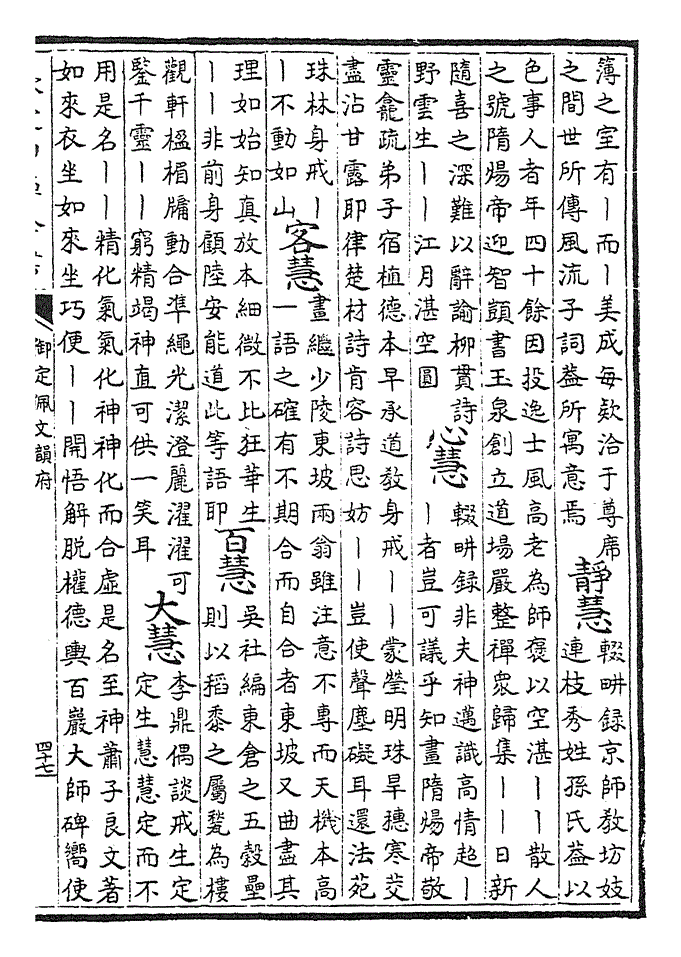 簿之室有丨而丨美成每欵洽于尊席
之間世所傳風流子詞葢所寓意焉
靜慧
輟畊録京師教坊妓
連枝秀姓孫氏葢以
色事人者年四十餘因投逸士風高老為師褒以空湛丨丨散人
之號隋煬帝迎智顗書玉泉創立道場嚴整禪衆歸集丨丨日新
隨喜之深難以辭諭柳貫詩
野雲生丨丨江月湛空圓
心慧
輟畊録非夫神邁識高情超丨
丨者豈可議乎知畫隋煬帝敬
靈龕疏弟子宿植德本早承道教身戒丨丨蒙瑩明珠旱穗寒茭
盡沾甘露耶律楚材詩肯容詩思妨丨丨豈使聲塵礙耳還法苑
珠林身戒丨
丨不動如山
客慧
畫繼少陵東坡兩翁雖注意不專而天機本高
一語之確有不期合而自合者東坡又曲盡其
理如始知真放本細微不比狂華生
丨丨非前身顧陸安能道此等語耶
百慧
吳社編東倉之五穀壘
則以稻黍之屬甃為樓
觀軒楹楣牗動合準繩光潔澄麗濯濯可
鍳千靈丨丨窮精竭神直可供一笑耳
大慧
李鼎偶談戒生定
定生慧慧定而不
用是名丨丨精化氣氣化神神化而合虛是名至神蕭子良文著
如來衣坐如來坐巧便丨丨開悟解脱權德輿百巖大師碑嚮使
御定佩文韻府
四十七